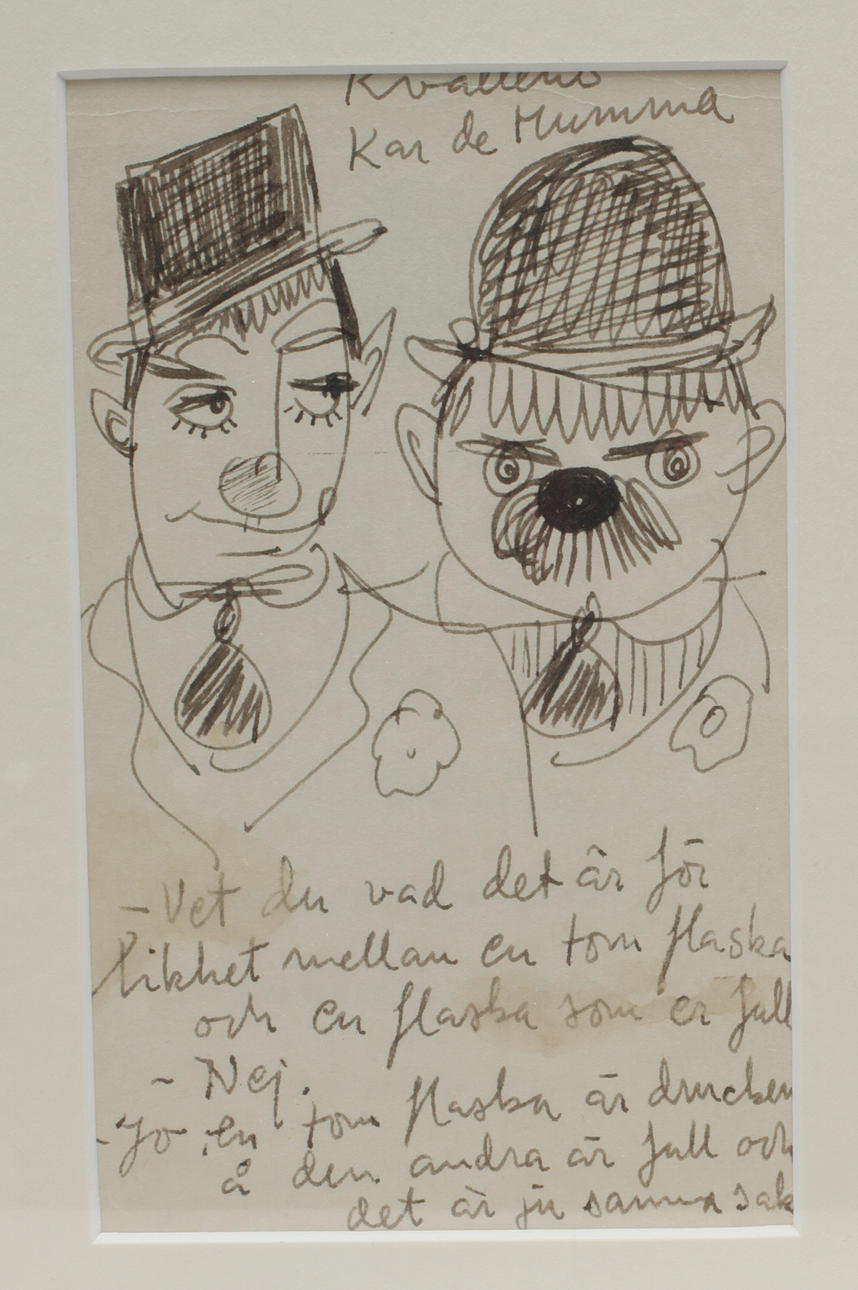 Kvällens
Kar de Mumma
- Vet du vad det är för
likhet mellan en tom flaska
och en flaska som er full
- Nej.
- Jo, en tom flaska är drucken
å den andra är full och
det är ju samma sak